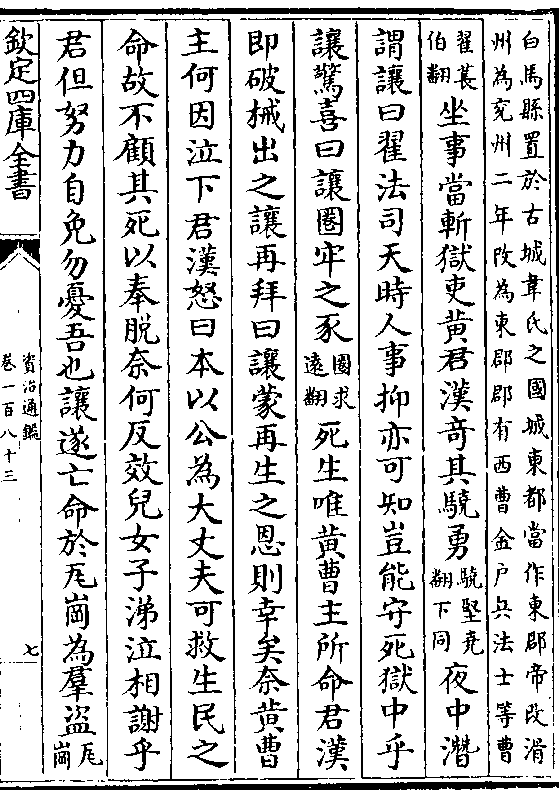 白馬縣置於古城韋氏之國城東都當作東郡帝改滑
州為兗州二年改為東郡郡有西曹金户兵法士等曹
翟萇
伯翻
坐事當斬獄吏黄君漢竒其驍勇
驍堅堯
翻下同
夜中潛
謂讓曰翟法司天時人事抑亦可知豈能守死獄中乎
讓驚喜曰讓圈牢之豕
圈求
逺翻
死生唯黄曹主所命君漢
即破械出之讓再拜曰讓蒙再生之恩則幸矣奈黄曹
主何因泣下君漢怒曰本以公為大丈夫可救生民之
命故不顧其死以奉脱奈何反效兒女子涕泣相謝乎
君但努力自免勿憂吾也讓遂亡命於瓦崗為羣盜
瓦
崗
欽定四庫全書
資治通鑑
卷一百八十三
七